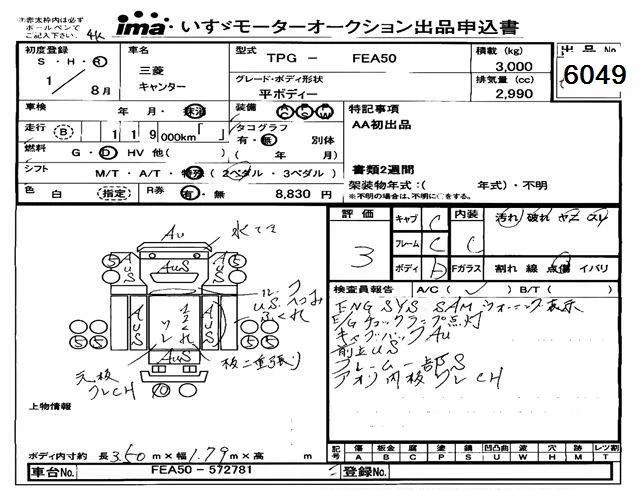 ※赤太枠内は必ず
ボールペンで
ご記入下さい。
4K
ima いすゞモーターオークション出品申込書
初度登録
S・H・R
1／8月
車名
三菱
キャンター
型式
TPG - FEA50
グレード・ボディ形状
平ボディー
積載 (kg)
3,000
排気量 (cc)
2,990
出品No
6049
車検 年・月・抹消
装備 AC PS PW
走行 (B) 119,000km「 」
タコグラフ
有・無 別体
( 年 月)
燃料 G・D HV 他( )
シフト M/T・A/T・特殊 (2ペダル・3ペダル)
色 白 (指定)
R券 有・無 8,830 円
特記事項
AA初出品
書類2週間
架装物年式:( 年式)・不明
※不明の場合は、不明に○をする。
評価
3
キャブ C
フレーム C
ボディ b
内装 C
汚れ 破れ ヤニ スレ
Fガラス 割れ 線 点傷 イバリ
検査員報告 A/C( ✓ ) B/T( )
ENG SYS SAM ウォーニング表示
E/G チェックランプ点灯
キャブバック AU
前立US
フレーム一部S
アオリ内板ワレCH
AU
水アカ
AUS
AUS
AUS
AUS
AUS
AUS
US ヘコみ
ふくれ
ワレ
板二重張り
元板
ワレCH
5
5
5
5
10
上物情報
ボディ内寸約 長 3.50 m×幅 1.79 m×高 m
記号 傷 板金 腐 塗 錆 凹凸曲 波 穴 跡 レツ割
A B C P S U W H M T
車台No. FEA50 - 572781
登録No.